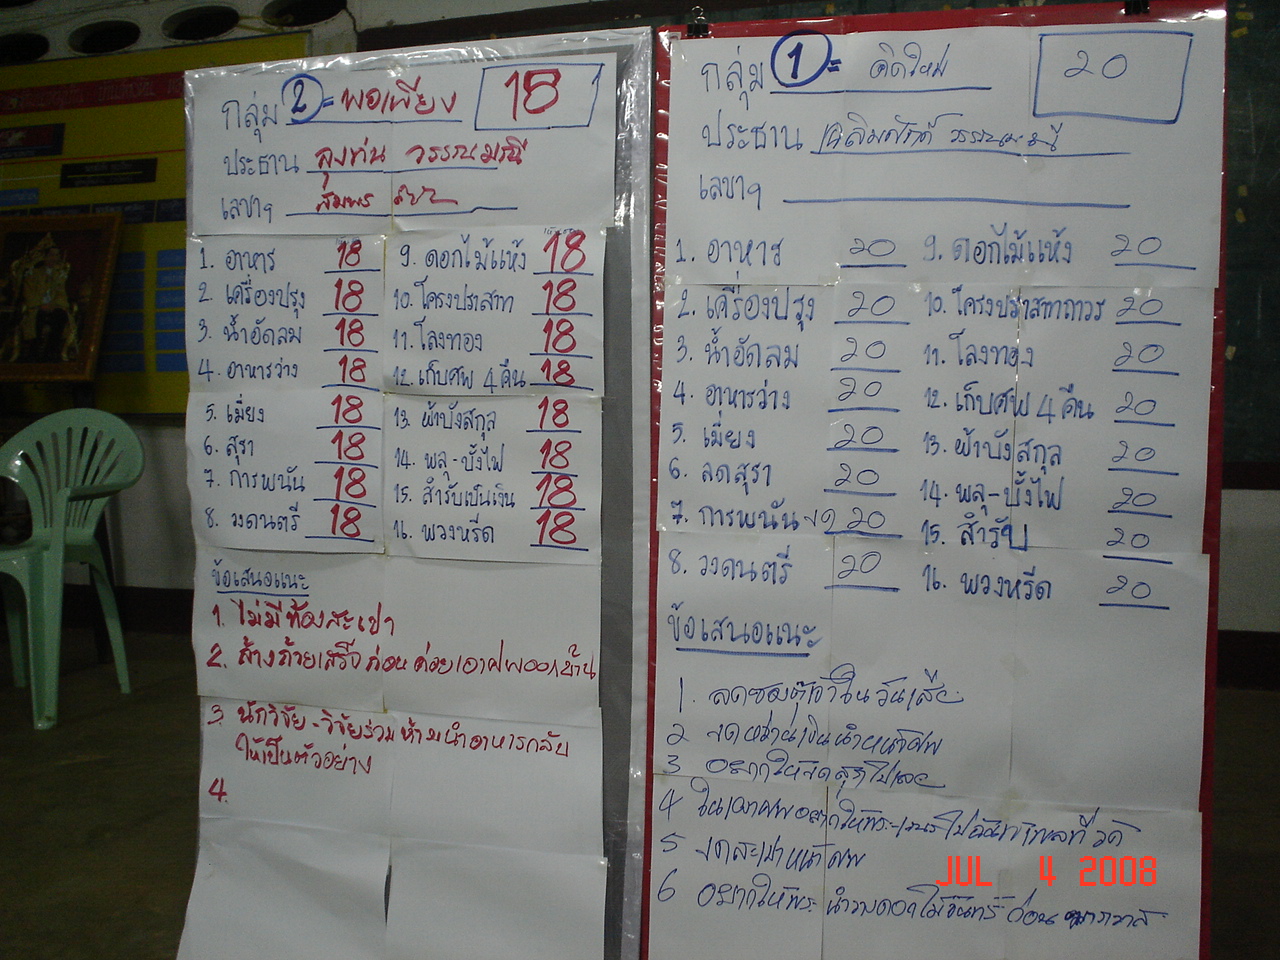 กลุ่ม 2 = พอเพียง 18
ประธาน ลุงท่น วรรณมณี
เลขาฯ สมพร
1. อาหาร 18
2. เครื่องปรุง 18
3. น้ำอัดลม 18
4. อาหารว่าง 18
5. เมี่ยง 18
6. สุรา 18
7. การพนัน 18
8. วงดนตรี 18
9. ดอกไม้แห้ง 18
10. โครงปราสาท 18
11. โลงทอง 18
12. เก็บศพ 4 คืน 18
13. ผ้าบังสกุล 18
14. พลุ-บั้งไฟ 18
15. สำรับเป็นเงิน 18
16. พวงหรีด 18
ข้อเสนอแนะ
1. ไม่มีท้องสะเปา
2. ล้างถ้วยเสร็จก่อนค่อยเอาศพออกบ้าน
3. นักวิจัย-วิจัยร่วมห้ามนำอาหารกลับ
ให้เป็นตัวอย่าง
4.
กลุ่ม 1 = คิดใหม่ 20
ประธาน เฉลิมศักดิ์ วรรณมณี
เลขาฯ
1. อาหาร 20
2. เครื่องปรุง 20
3. น้ำอัดลม 20
4. อาหารว่าง 20
5. เมี่ยง 20
6. ลดสุรา 20
7. การพนัน งด 20
8. วงดนตรี 20
9. ดอกไม้แห้ง 20
10. โครงปราสาทถาวร 20
11. โลงทอง 20
12. เก็บศพ 4 คืน 20
13. ผ้าบังสกุล 20
14. พลุ-บั้งไฟ 20
15. สำรับ 20
16. พวงหรีด 20
ข้อเสนอแนะ
1. ลดซองตุ๊เจ้าในวันเสีย
2 งดหว่านเงินนำหน้าศพ
3 อยากให้งดสุราไปเลย
4 ในเผาศพอยากให้พระ-เณรไปฉันเพลที่วัด
5 งดสะเปาหน้าศพ
6 อยากให้พระนำวางดอกไม้จันทร์ก่อน
JUL 4 2008